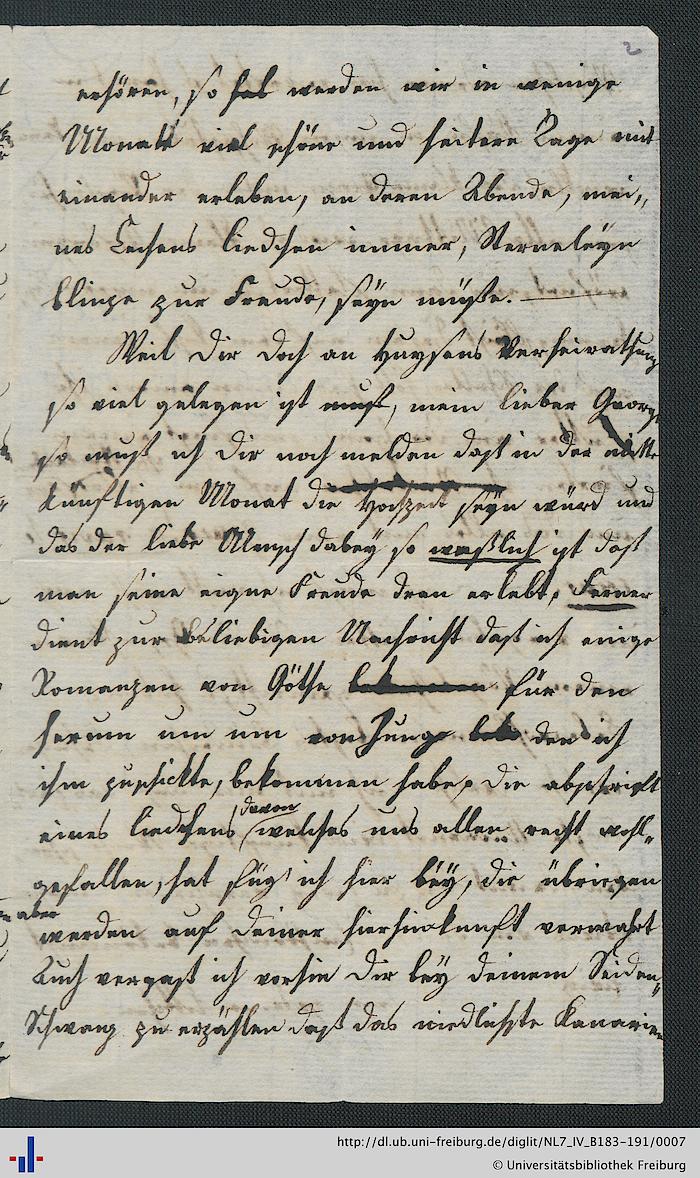 2
erhören, so werden wir in wenige
Monate viel schöne und heitere Tage mit
einander erleben, an deren Abende, mei„
nes Liedchen immer, Sterneleyn
blinze zur Freude, seyn müße.
Weil dir doch an Huysens Verheirathung
so viel gelegen ist, mein lieber George
so muß ich dir noch melden daß in der mitte
künftigen Monat die Hochzeit seyn würd und
das der liebe Mensch dabey so ist daß
man seine eigne Freude dran erlebt, Ferner
dient zur beliebigen Nachricht daß ich einige
Romanzen von Göthe für den
herum um um von Jung den ich
ihm zuschickte, bekommen habe, die abschrift
eines liedchens davon welches uns allen recht wohl„
gefallen, hat füg' ich hier bey, die übriegen
aber
werden auf deiner hierhinkunft verwahrt
Auch vergaß ich vorhin dir bey deinem Seiden„
Schwanz zu erzählen daß das niedlichste Kanarien
http://dl.ub.uni-freiburg.de/diglit/NL7_IV_B183-191/0007
© Universitätsbibliothek Freiburg